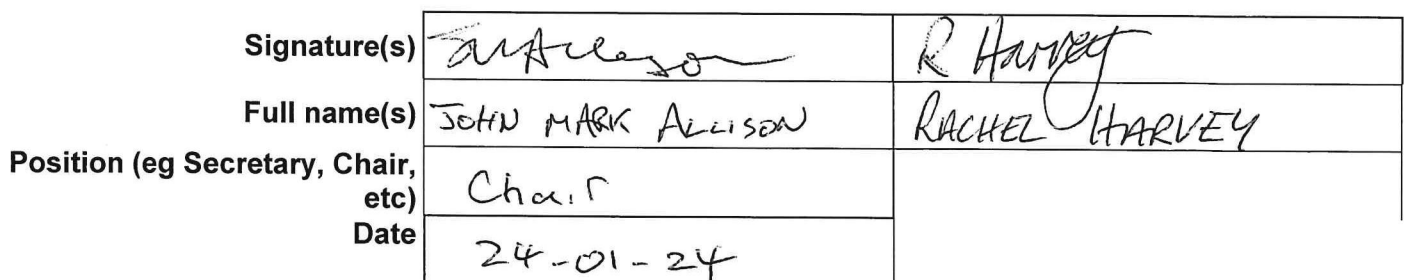 Signature(s) JMAllison R Harvey
Full name(s) JOHN MARK ALLISON RACHEL HARVEY
Position (eg Secretary, Chair,
etc) Chair
Date 24-01-24